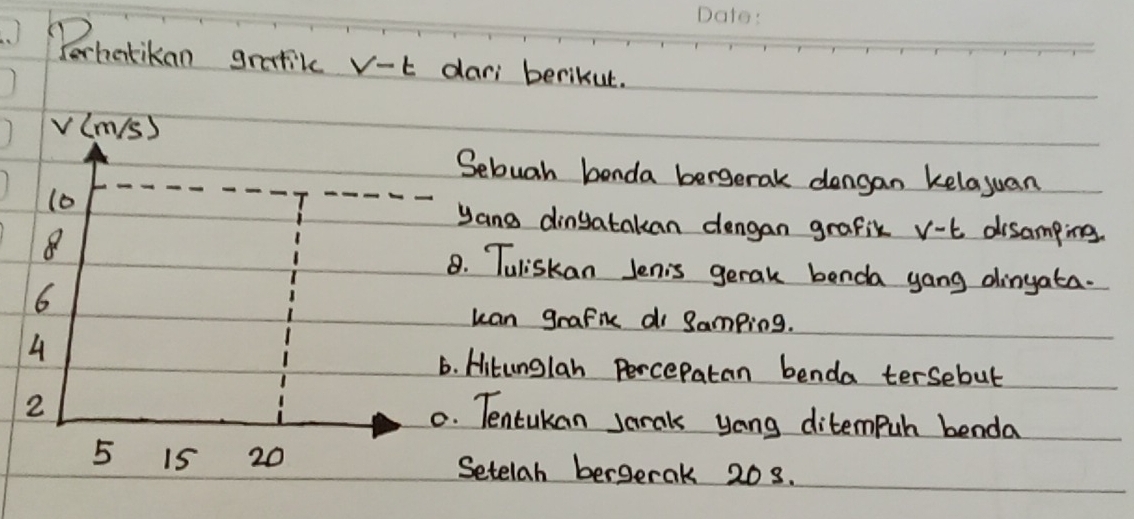 Date:
Perhatikan grafik v-t dari berikut.
V (m/s)
10
8
6
4
2
5 15 20
Sebuah benda bergerak dengan kelajuan
yang dinyatakan dengan grafik v-t disamping.
a. Tuliskan Jenis gerak benda yang dinyata-
kan grafik di samping.
b. Hitunglah Percepatan benda tersebut
c. Tentukan Jarak yang ditempuh benda
Setelah bergerak 20 s.